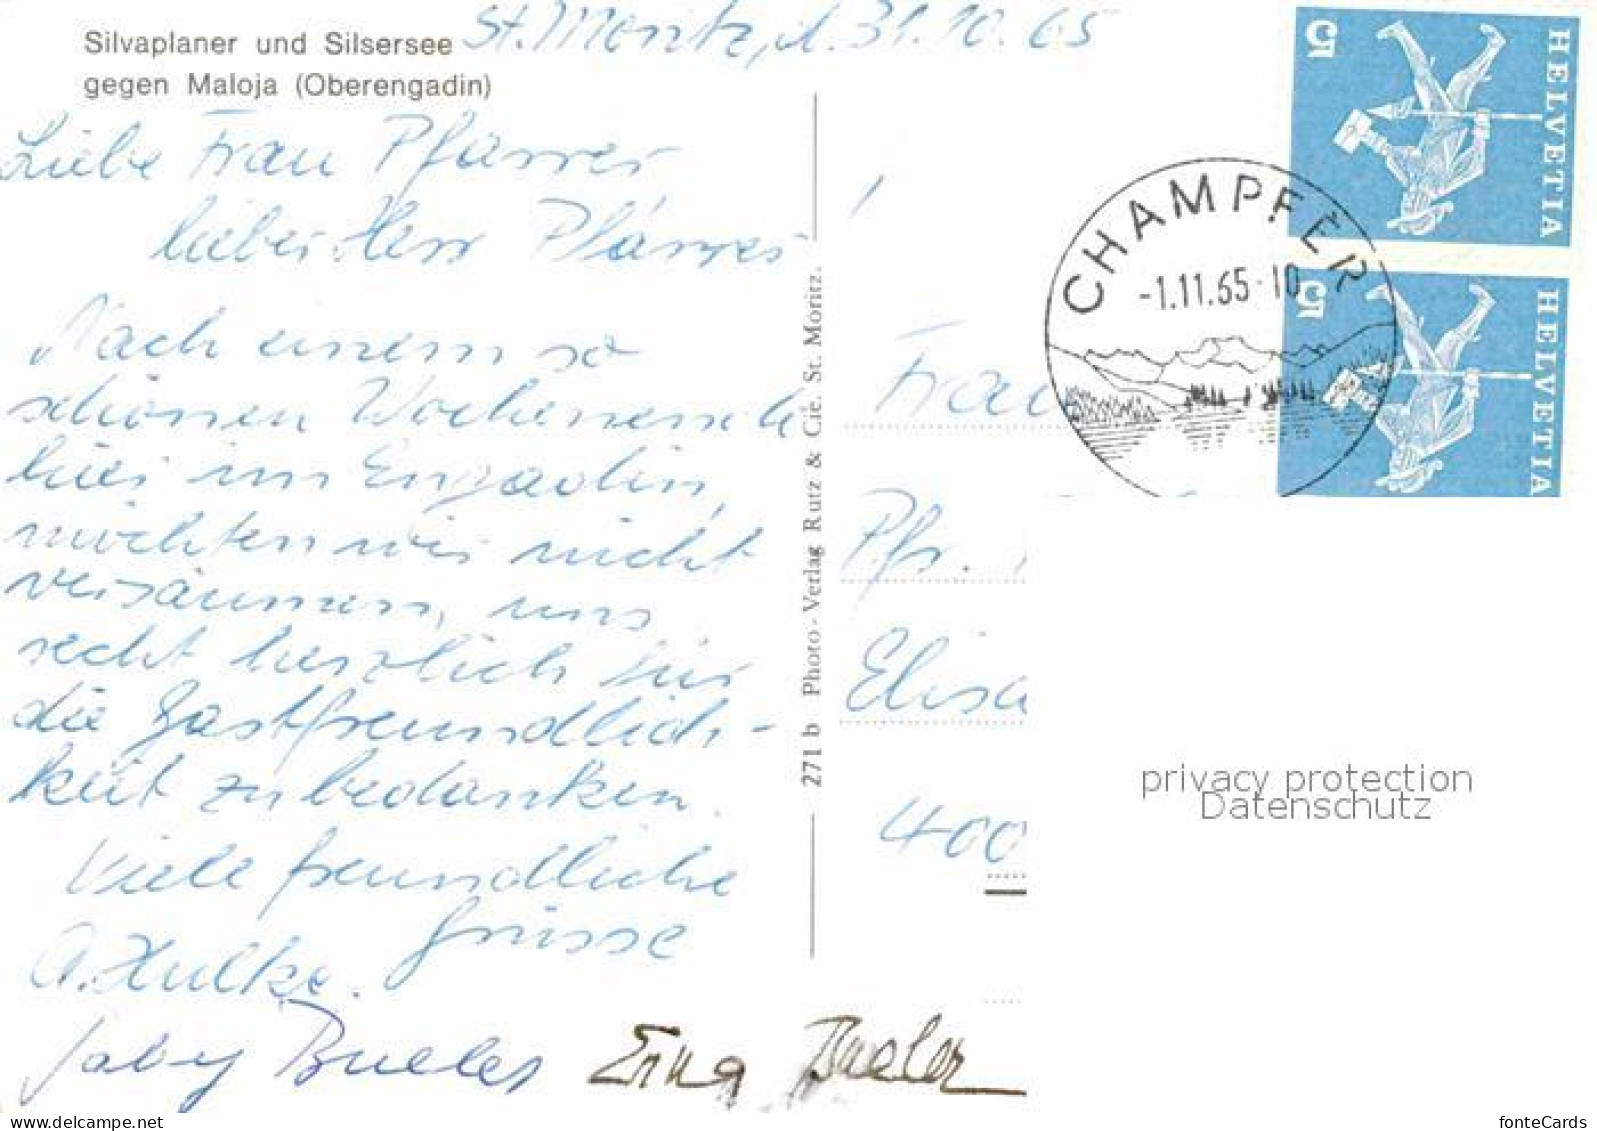 Silvaplaner und Silsersee
gegen Maloja (Oberengadin)
St. Moritz, d. 31.10.65
Liebe Frau Pfarrer
lieber Herr Pfarrer
!
Nach einem so
schönen Wochenende
hier im Engadin,
möchten wir nicht
versäumen, uns
recht herzlich für
die Gastfreundlich-
keit zu bedanken.
Viele freundliche
Grüsse
A. Hulke.
Gaby Bueler Erna Bueler
271 b Photo-Verlag Rutz & Cie. St. Moritz.
HELVETIA
5
HELVETIA
5
CHAMPFÈR
-1.11.65-10
Frau
Pfr.
Elisa
400
privacy protection
Datenschutz
www.delcampe.net
fonteCards